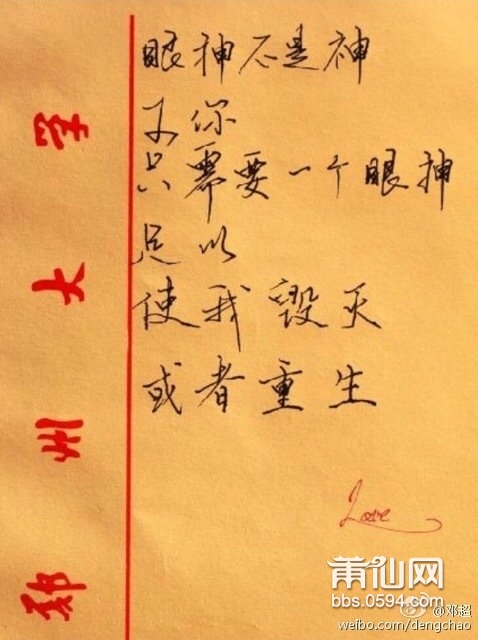 郑州大学
眼神不是神
你
只需要一个眼神
足以
使我毁灭
或者重生
Love
莆仙网
bbs.0594.com
@邓超
weibo.com/dengchao